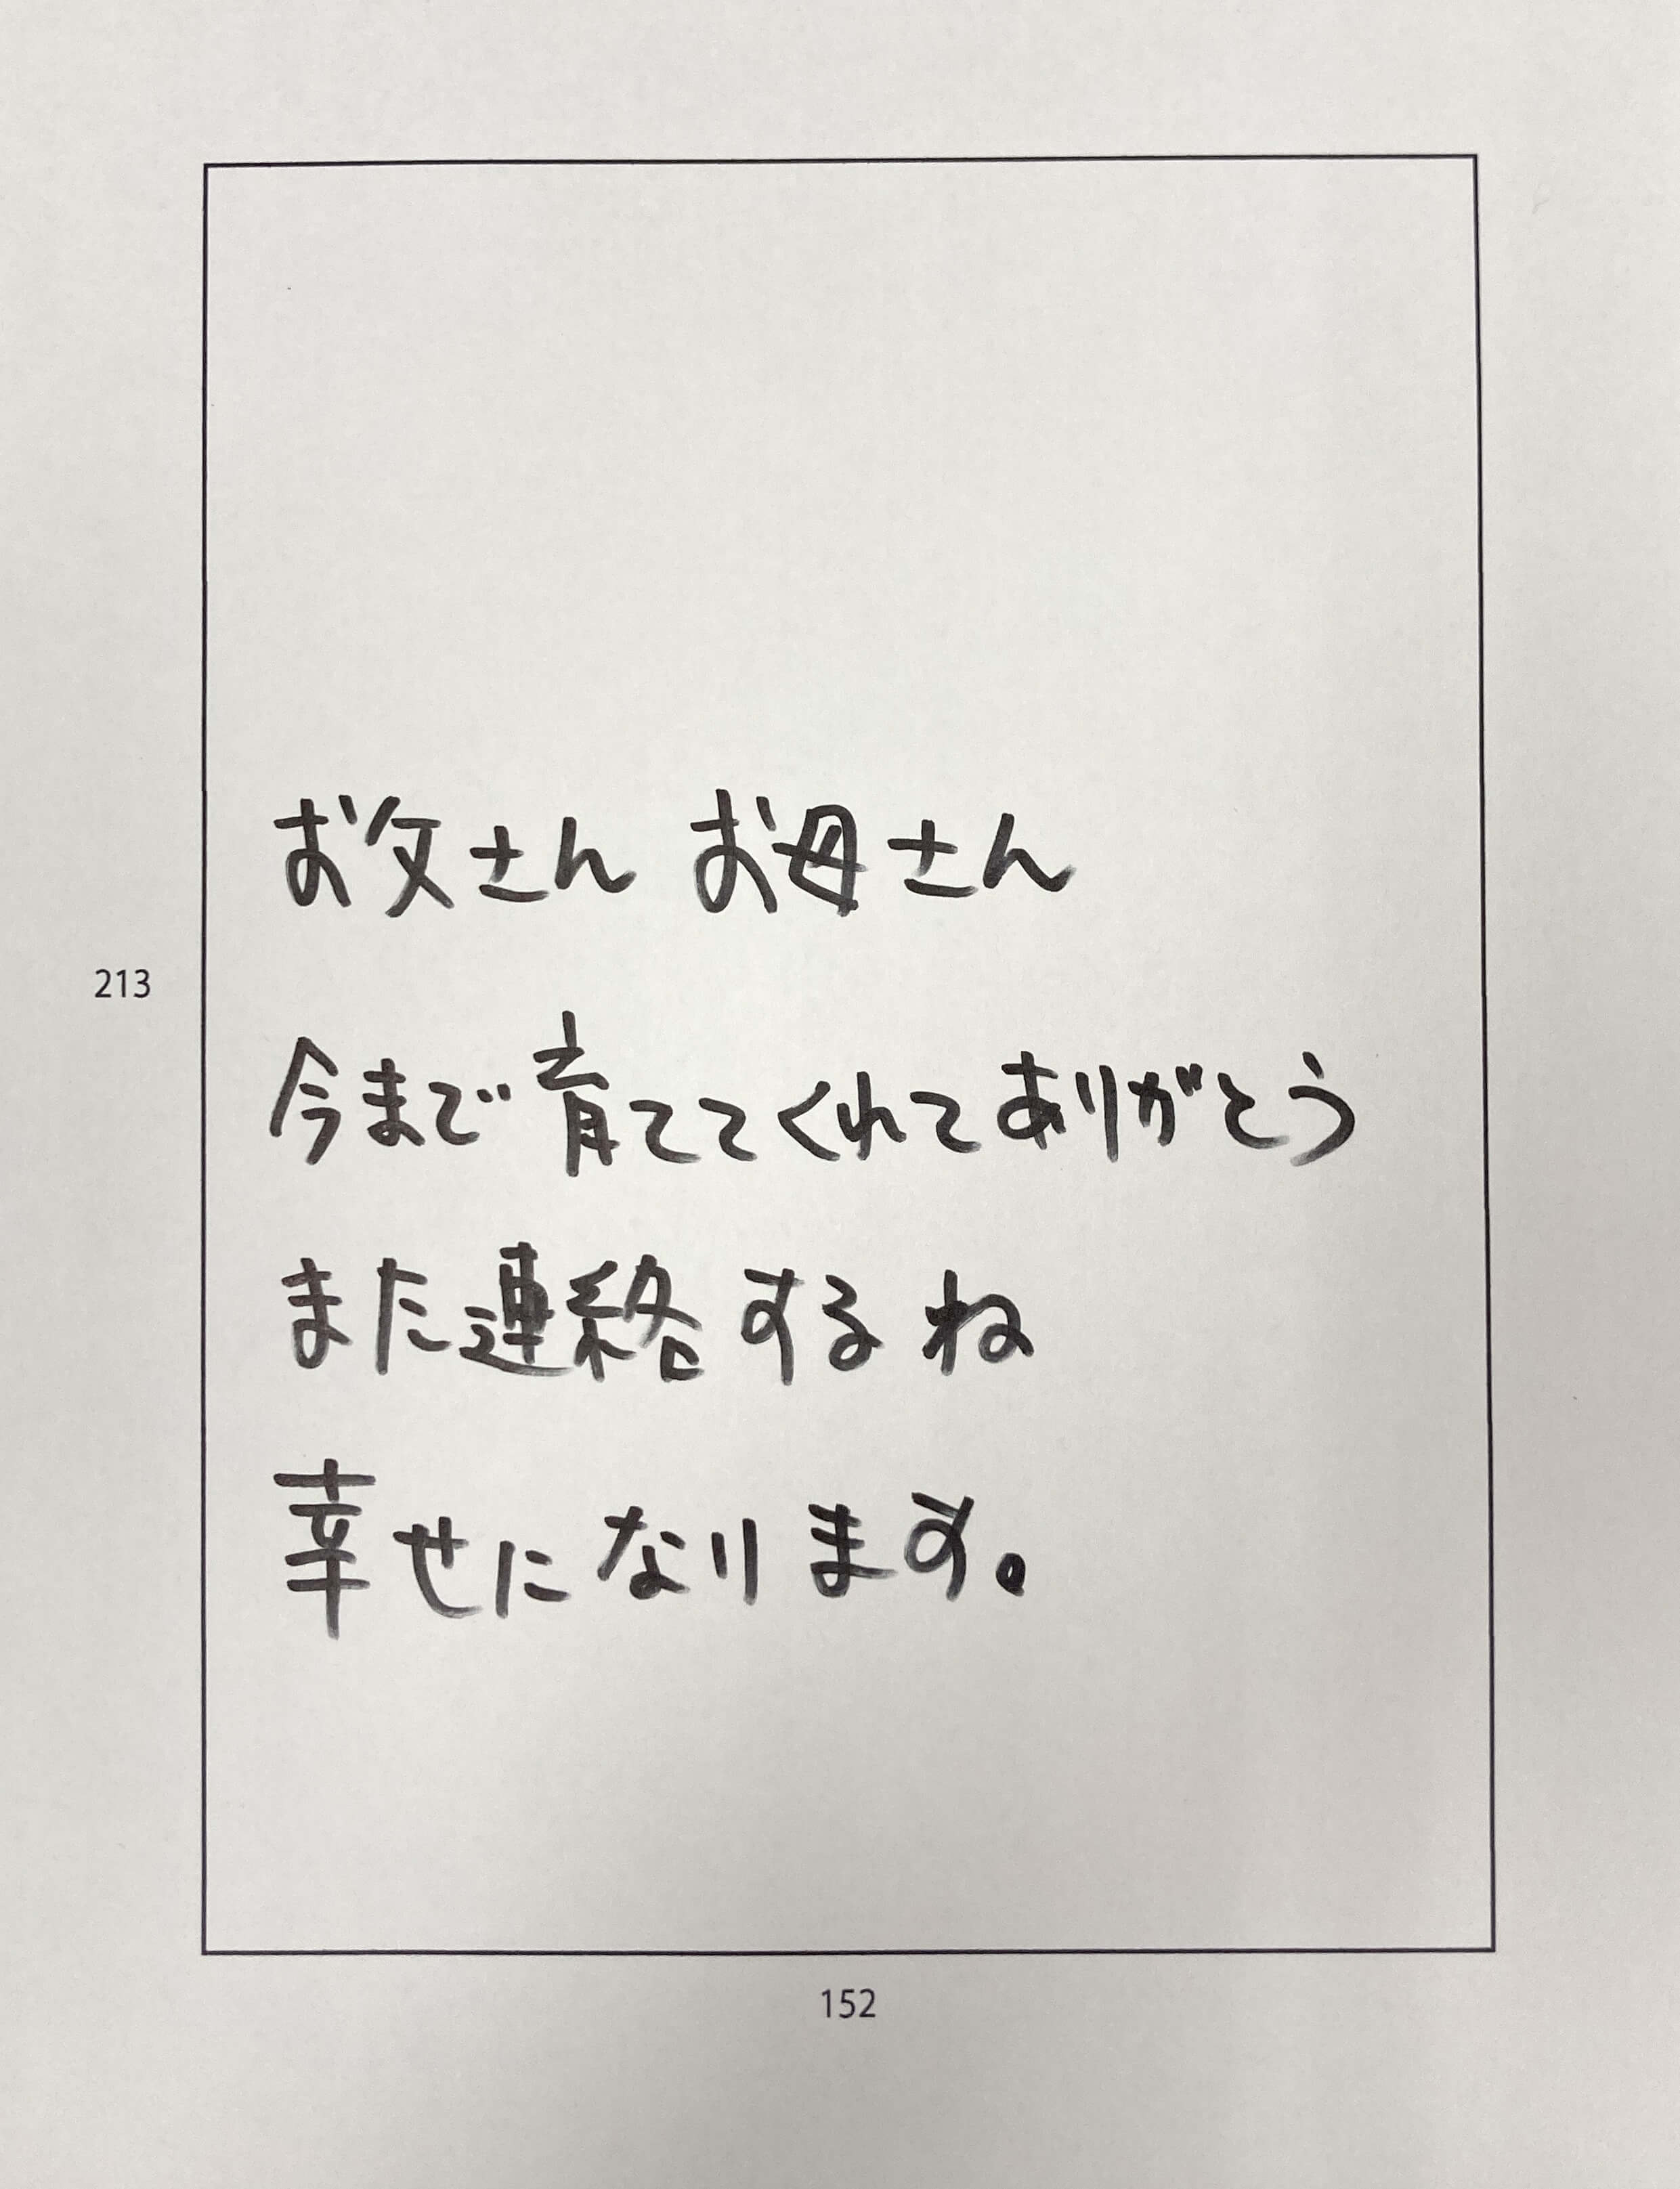 お父さん お母さん
213
今まで育ててくれてありがとう
また連絡するね
幸せになります。
152